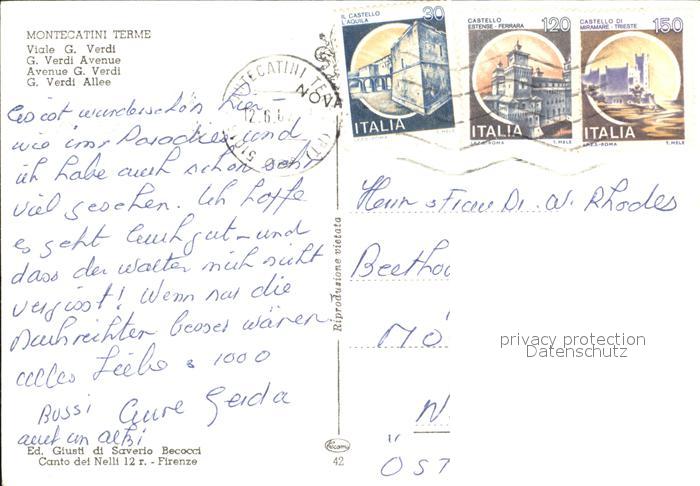 MONTECATINI TERME
Viale G. Verdi
G. Verdi Avenue
Avenue G. Verdi
G. Verdi Allee
IL CASTELLO
L'AQUILA
30
ITALIA
I.P.Z.S.-ROMA T. MELE
CASTELLO
ESTENSE - FERRARA
120
ITALIA
I.P.Z.S.-ROMA T. MELE
CASTELLO DI
MIRAMARE - TRIESTE
150
ITALIA
I.P.Z.S.-ROMA T. MELE
NOVA
12.6.
Es ist wunderschön hier -
wie ims Paradies und
ich habe auch schon sehr
viel gesehen. Ich hoffe
es geht Euch gut - und
dass der Walter mich nicht
vergisst! Wenn nur die
Nachrichten besser wären
alles Liebe & 1000
Bussi Eure Gerda
Riproduzione vietata
Herrn & Frau Dr. W. Rhodes
Beetho
MÖ
N
ÖST
privacy protection
Datenschutz
Ed. Giusti di Saverio Becocci
Canto dei Nelli 12 r. - Firenze
42